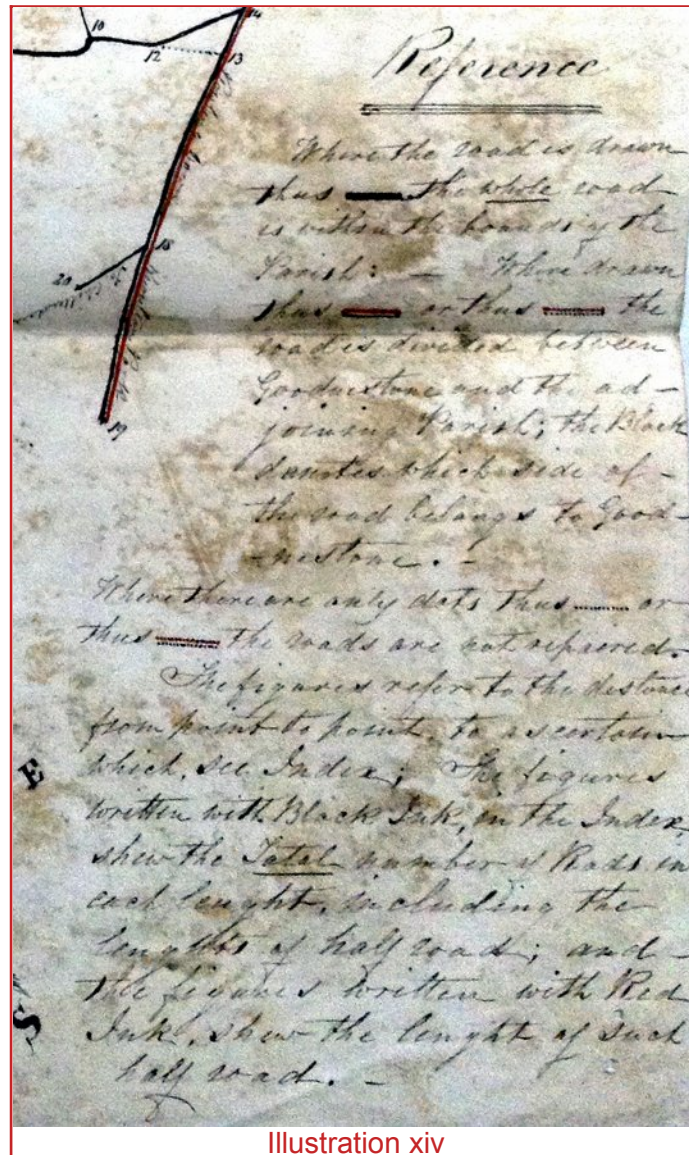 10
12
13
14
18
20
19
Reference
Where the road is drawn
thus the whole road
is within the bounds of the
Parish: — Where drawn
thus or thus the
road is divided between
Goodnestone and the ad-
joining Parish; the Black
denotes which side of -
the road belongs to Good-
-nestone. -
Where there are only dots thus or
thus the roads are not repaired.
The figures refer to the distance
from point to point, to ascertain
which, see Index; The figures
written with Black Ink, in the Index,
shew the Total number of Rods in
each lenght, including the
lenghts of half road; and -
the figures written with Red
Ink, shew the lenght of such
half road. -
E
S
Illustration xiv